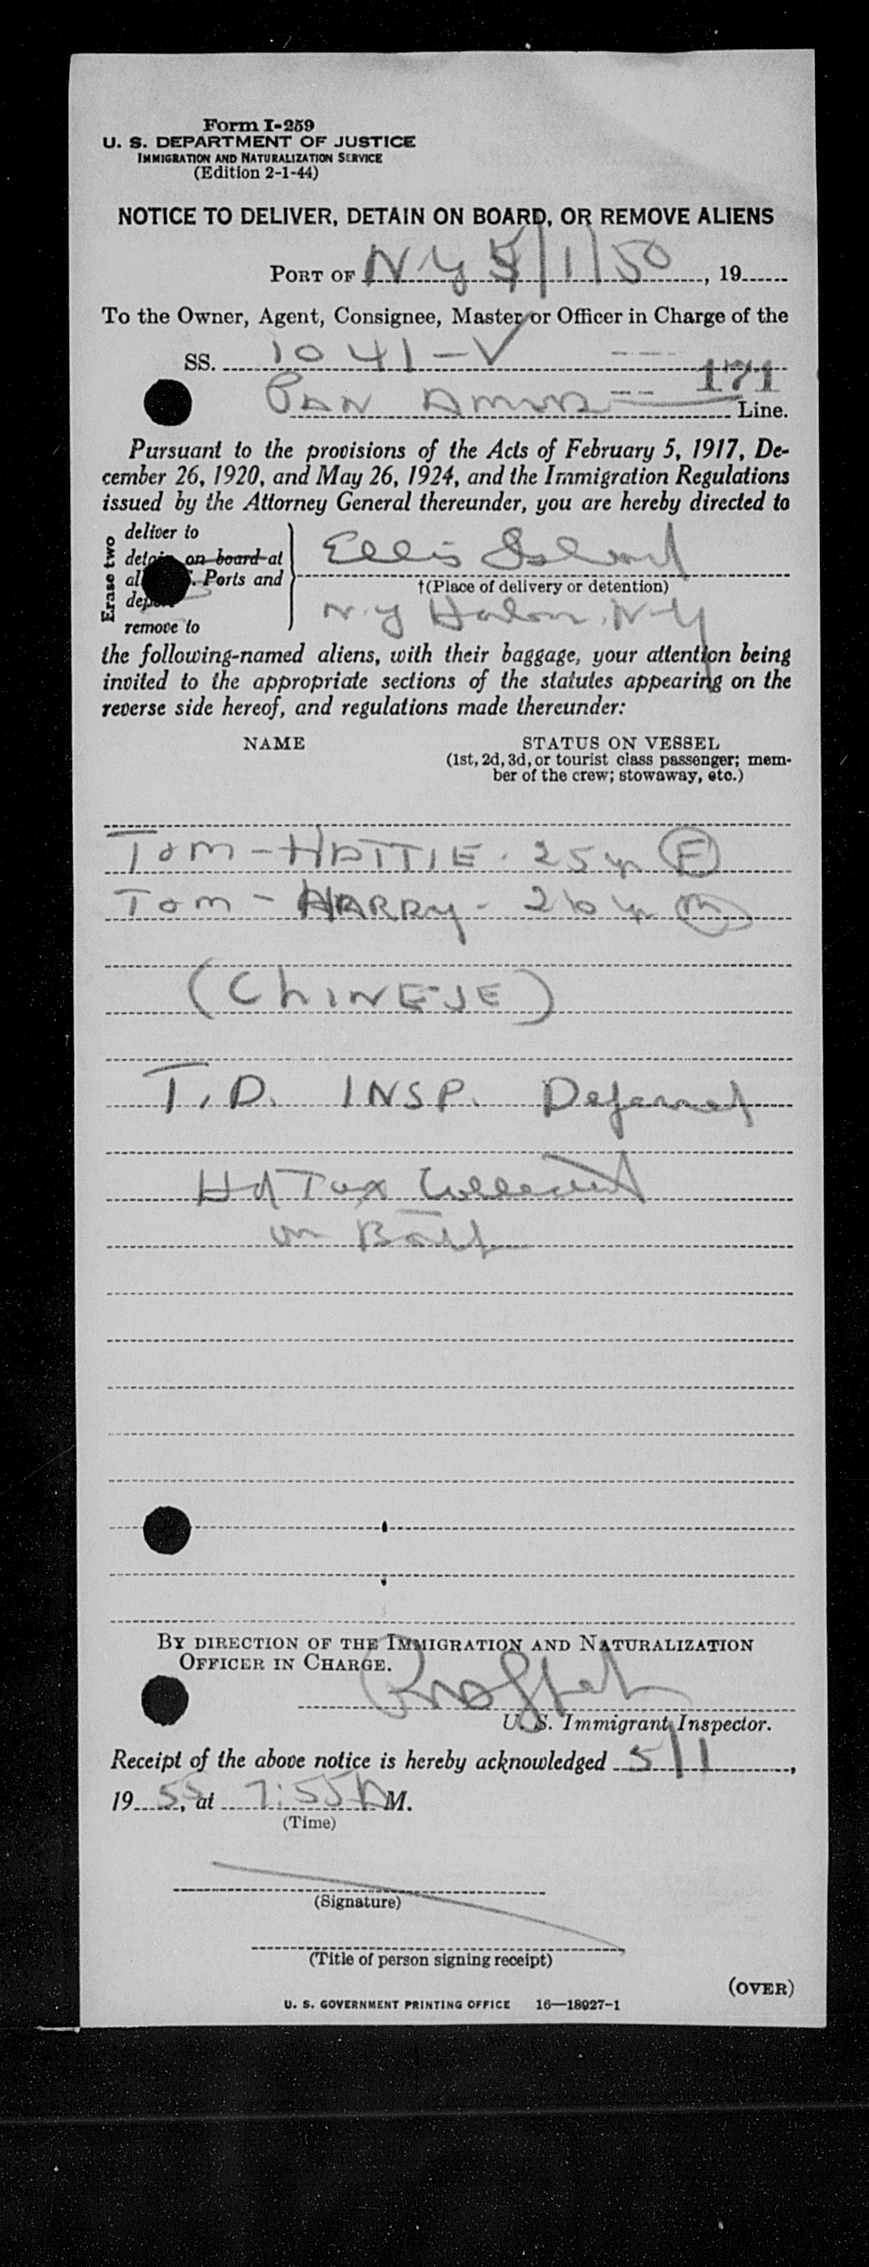 Form I-259
U. S. DEPARTMENT OF JUSTICE
IMMIGRATION AND NATURALIZATION SERVICE
(Edition 2-1-44)
NOTICE TO DELIVER, DETAIN ON BOARD, OR REMOVE ALIENS
PORT OF NY 5/1/50, 19
To the Owner, Agent, Consignee, Master or Officer in Charge of the
SS. 1041-V
171
PAN AMER Line.
Pursuant to the provisions of the Acts of February 5, 1917, De-
cember 26, 1920, and May 26, 1924, and the Immigration Regulations
issued by the Attorney General thereunder, you are hereby directed to
Erase two
deliver to
detain on board at
al . Ports and
remove to
Ellis Island
†(Place of delivery or detention)
N.Y. N.Y
the following-named aliens, with their baggage, your attention being
invited to the appropriate sections of the statutes appearing on the
reverse side hereof, and regulations made thereunder:
NAME STATUS ON VESSEL
(1st, 2d, 3d, or tourist class passenger; mem-
ber of the crew; stowaway, etc.)
TOM - HATTIE - 25 yr F
TOM - HARRY - 26 yr M
(CHINESE)
T.D. INSP. Deferred
Hd Tax Collected
on Both
BY DIRECTION OF THE IMMIGRATION AND NATURALIZATION
OFFICER IN CHARGE.
U. S. Immigrant Inspector.
Receipt of the above notice is hereby acknowledged 5/1,
19 , at 7:55 A M.
(Time)
(Signature)
(Title of person signing receipt)
(OVER)
U. S. GOVERNMENT PRINTING OFFICE 16—18927-1